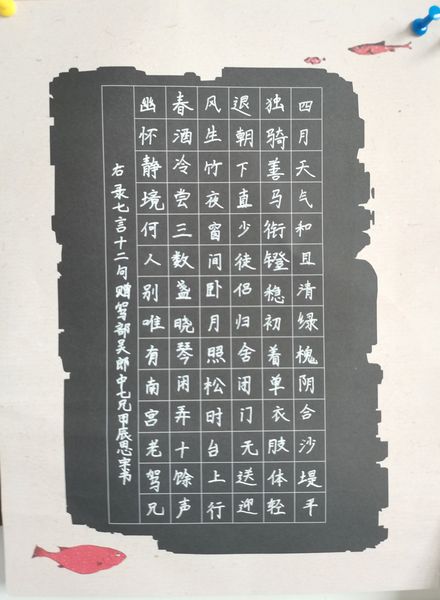 四月天气和且清绿槐阴合沙堤平
独骑善马衔镫稳初着单衣肢体轻
退朝下直少徒侣归舍闭门无送迎
风生竹夜窗间卧月照松时台上行
春酒冷尝三数盏晓琴闲弄十馀声
幽怀静境何人别唯有南宫老驾兄
右录七言十二句赠驾部吴郎中七兄甲辰思宋书